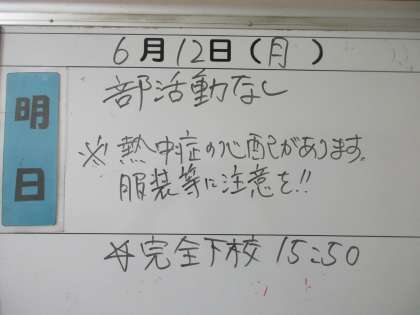 6月12日(月)
明日
部活動なし
※熱中症の心配があります。
服装等に注意を!!
☆完全下校 15:50